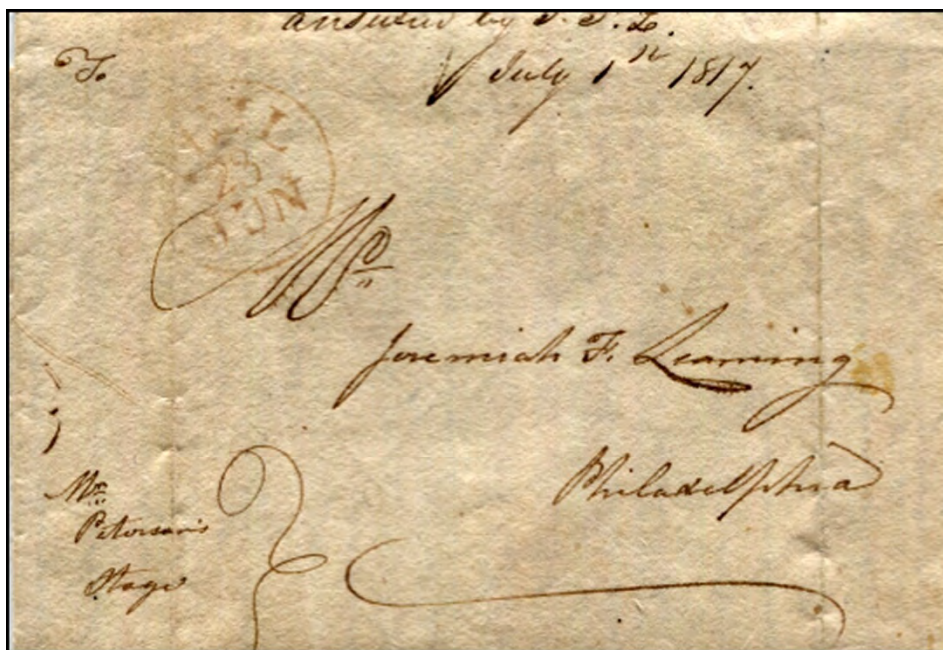 answered by J. F. L.
July 1st 1817.
To
23
JUN
Mr
Jeremiah F. Leaming
Philadelphia
Mr
Peterson's
Stage